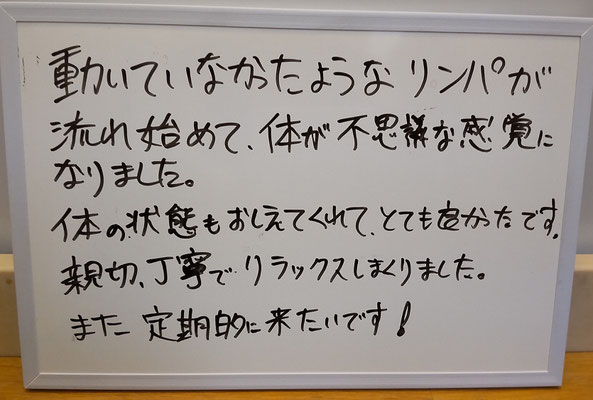 動いていなかったようなリンパが
流れ始めて、体が不思議な感覚に
なりました。
体の状態もおしえてくれて、とても良かったです。
親切、丁寧でリラックスしまくりました。
また定期的に来たいです！